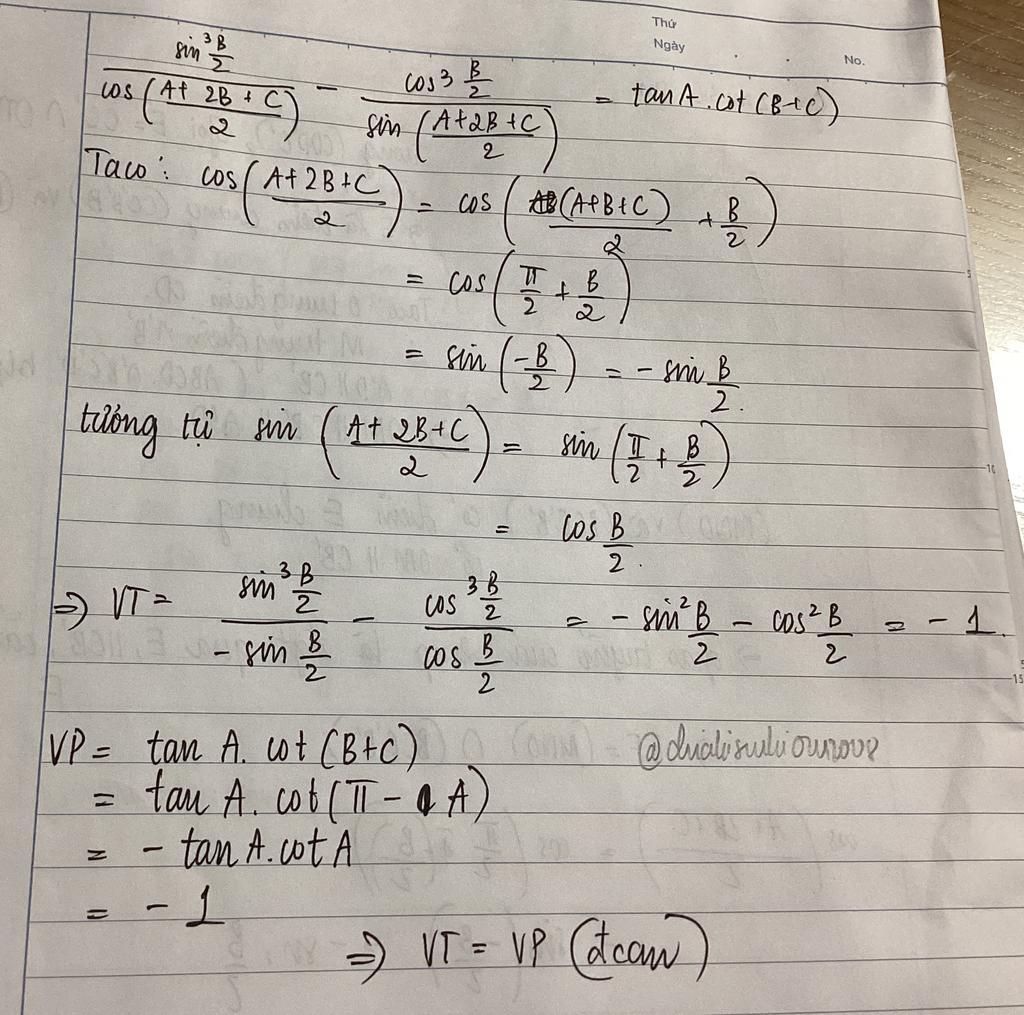 Thứ
Ngày
No.
sin³ B/2 / cos((A+2B+C)/2) - cos³ B/2 / sin((A+2B+C)/2) = tanA.cot(B+C)
Taco: cos((A+2B+C)/2) = cos((A+B+C)/2 + B/2)
= cos(π/2 + B/2)
= sin(-B/2) = -sin B/2.
5
tương tự sin((A+2B+C)/2) = sin(π/2 + B/2)
10
= cos B/2.
=> VT = sin³ B/2 / -sin B/2 - cos³ B/2 / cos B/2 = -sin² B/2 - cos² B/2 = -1.
15
VP = tan A. cot(B+C)
= tan A. cot(π - A)
= - tan A. cot A
= - 1
=> VT = VP (đccm)